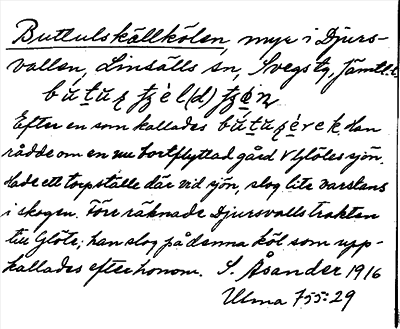 Buttulskällkölen, myr i Djurs-
vallen, Linsälls sn, Svegs tg, Jämtl. l.
Efter en som kallades han
rådde om en nu bortflyttad gård V Glötesjön.
Hade ett torpställe där vid sjön, slog lite varstans
i skogen. Före räknade Djursvallstrakten
till Glöte; han slog på denna köl som upp-
kallades efter honom. S. Åsander 1916
Ulma 755:29